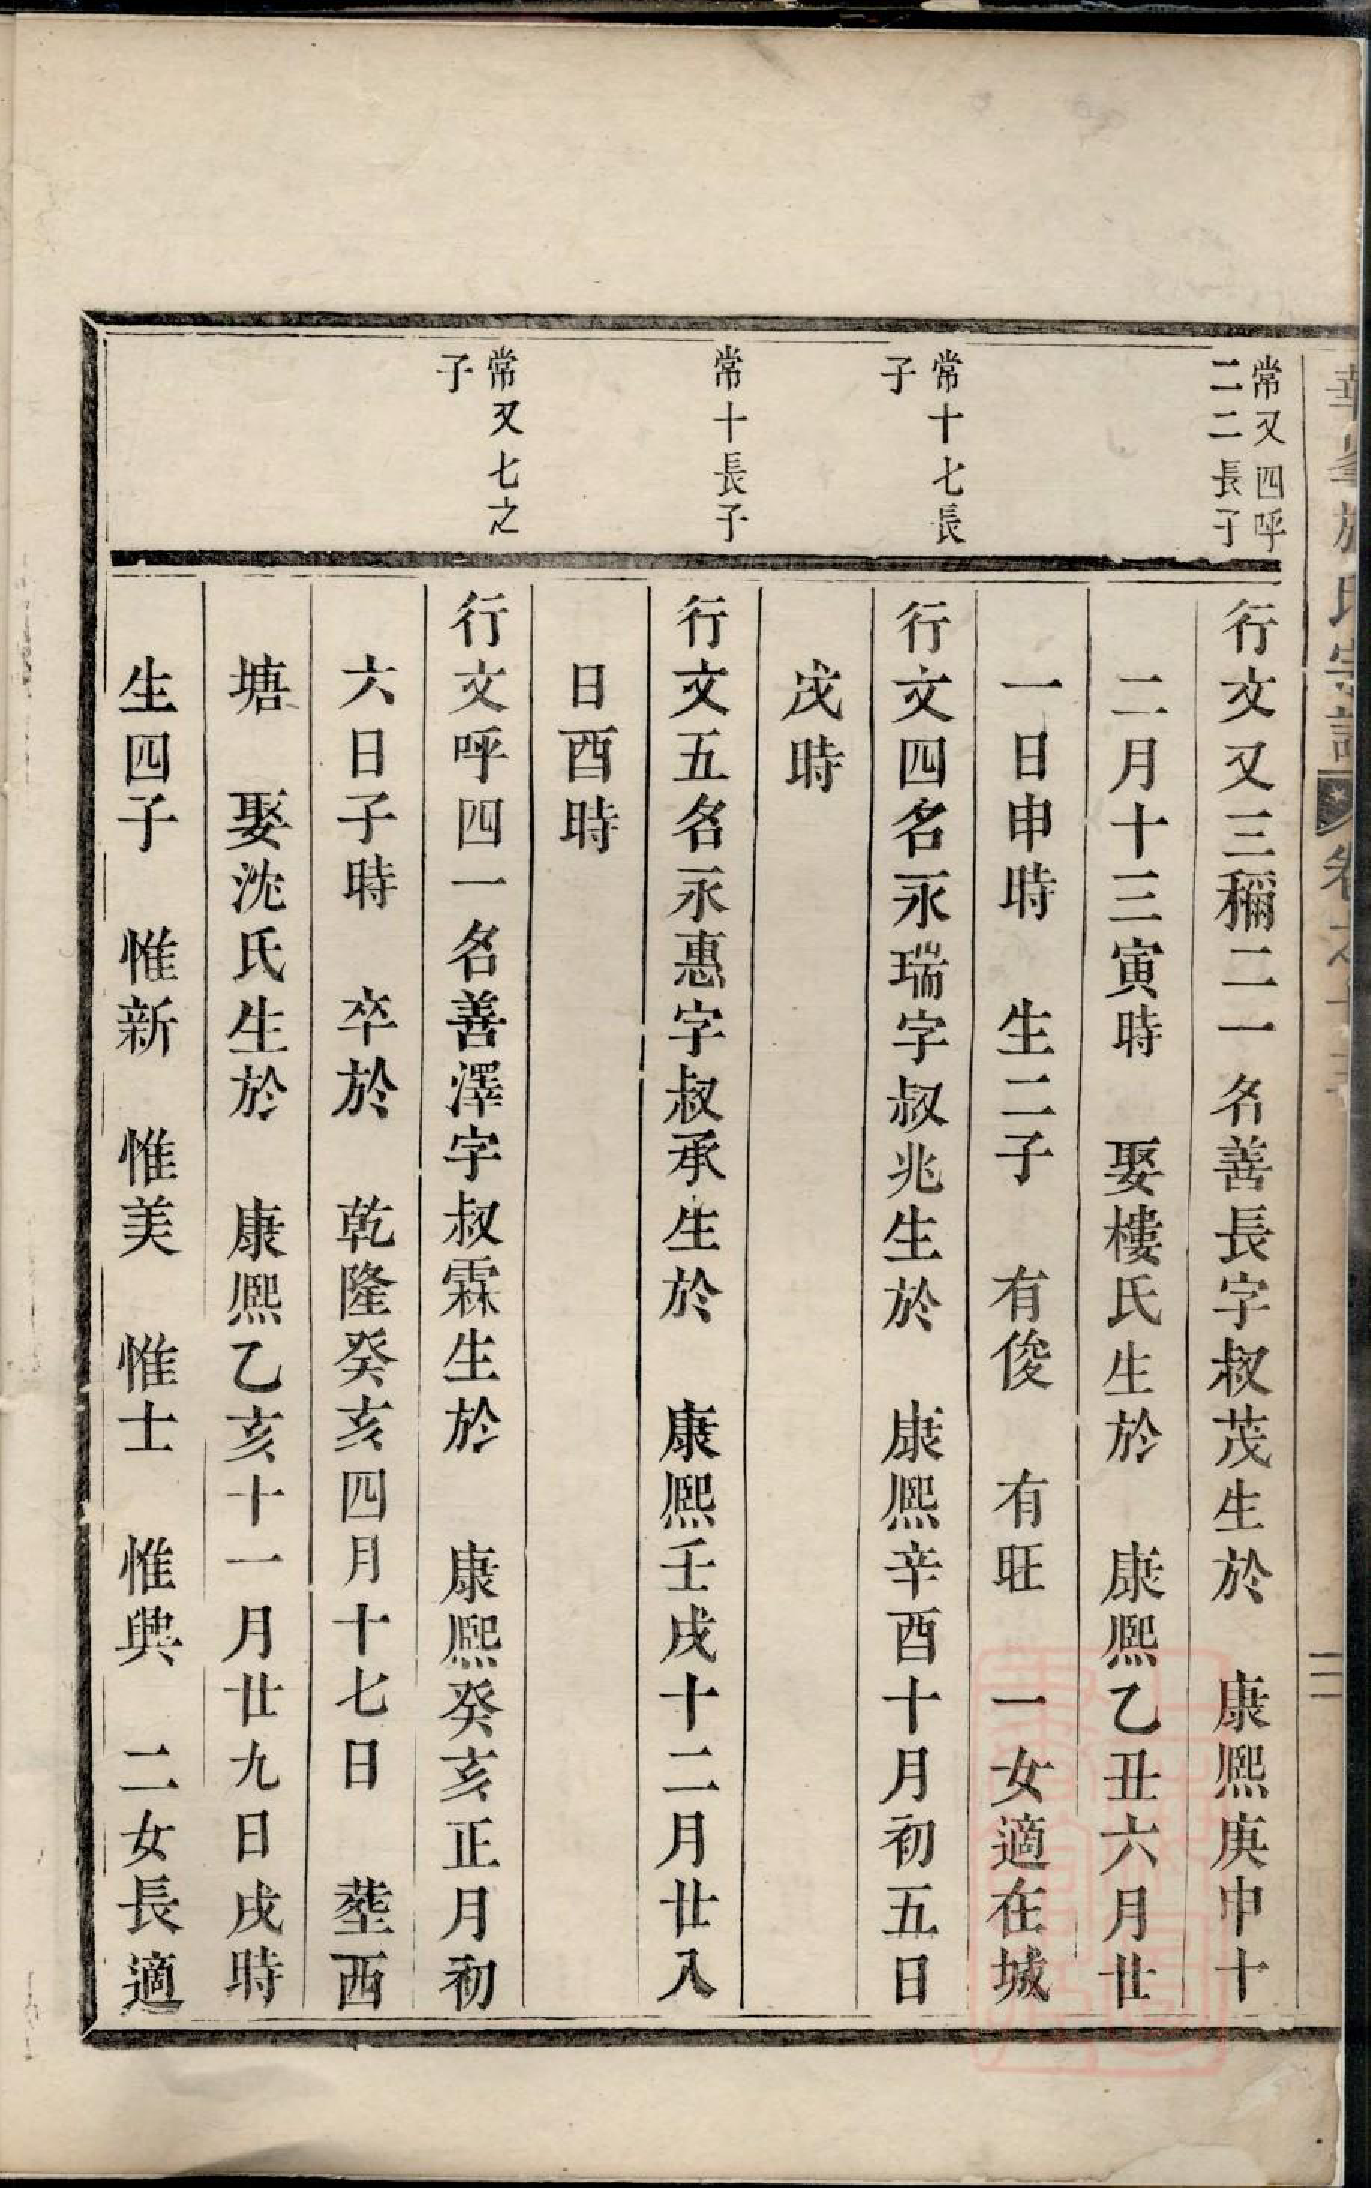 常又四呼
二二長子
行文又三稱二一名善長字叔茂生於　康熙庚申十
二月十三寅時　娶樓氏生於　康熙乙丑六月廿
一日申時　生二子　有俊　有旺　一女適在城
常十七長
子
行文四名永瑞字叔兆生於　康熙辛酉十月初五日
戌時
常十長子
行文五名永惠字叔承生於　康熙壬戌十二月廿入
日酉時
常又七之
子
行文呼四一名善澤字叔霖生於　康熙癸亥正月初
六日子時　卒於　乾隆癸亥四月十七日　塟西
塘　娶沈氏生於　康熙乙亥十一月廿九日戌時
生四子　惟新　惟美　惟士　惟興　二女長適